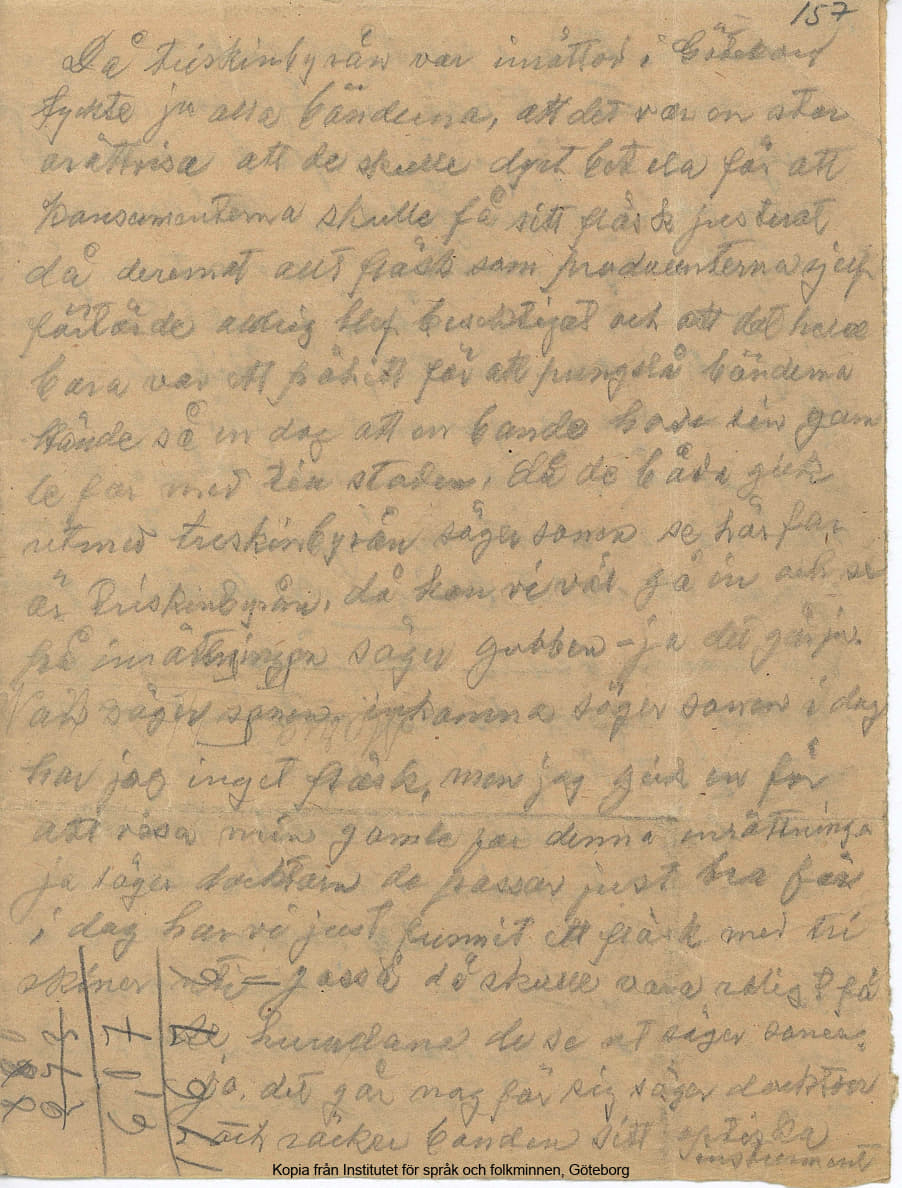 157
Då triskinbyrån var inrättod i
tyckte ju alla bönderna, att det var en stor
orättvisa att de skulle dyrt betala för att
konsumenterna skulle få sitt fläsk justerat
då deremot allt fläsk som producenterna sjelf
förtärde aldrig blef besicktigat och att det hela
bara var ett påhitt för att pungslå bönderna
Hände så en dag att en bonde hade sin gam
le far med till staden, då de båda gick
utmed triskinbyrån säger sonen se här far
är triskinbyrån, då kan vi väl gå in och se
på inrättningen säger gubben – ja det går ju
säger sonen, inkomna säger sonen i dag
har jag inget fläsk, men jag gick in för
att visa min gamle far denna inrättninga
ja säger docktorn de passar just bra för
i dag har vi just funnit ett fläsk med tri
skiner uti – jasså då skulle vara rolig? få
se, hurudana de se ut säger sonen,
ja, det går nog för sig säger docktorn
och räcker bonden sitt optiska
instrument
Kopia från Institutet för språk och folkminnen, Göteborg